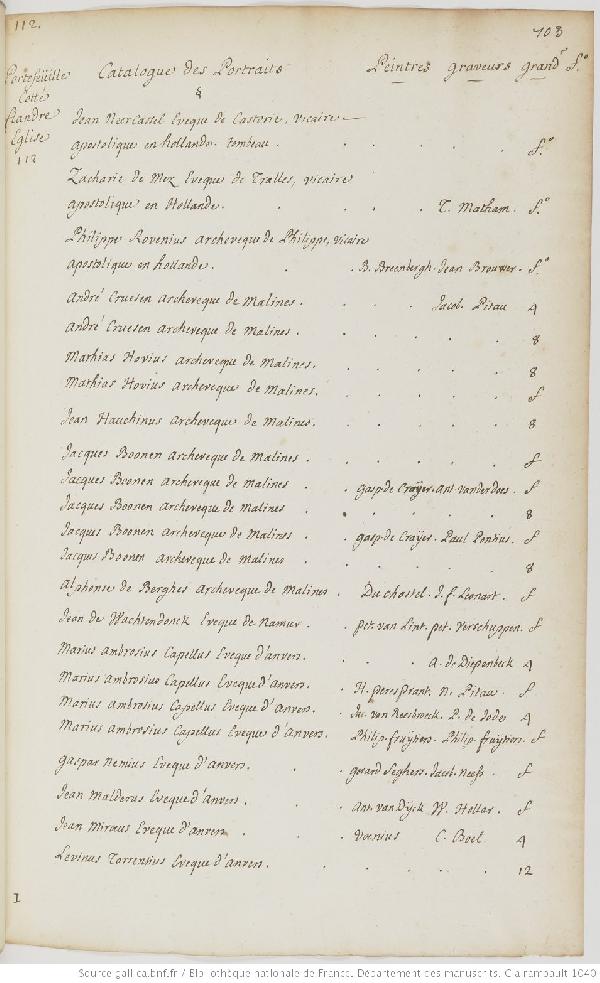 112.
103
Portefeüille Cotté flandre Eglise 112
Catalogue des Portraits Peintres graveurs grandr fo
§
Jean NeerCassel Eveque de Castorie, vicaire
apostolique en hollande. tombeau. . . . . . fo
Zacharie de Mez Eveque de Tralles, vicaire
apostolique en Hollande. . . . T. Matham. fo
Philippe Rovenius archeveque de Philippe, vicaire
apostolique en hollande. . . B. Breenbergh. Jean Brouwer. fo
André Cruesen Archeveque de Malines. . . . Jacob. Pitau 4
André Cruesen archeveque de Malines. . . . . . 8
Mathias Hovius archeveque de Malines. . . . . . 8
Mathias Hovius Archeveque de Malines. . . . . . f
Jean Hauchinus archeveque de Malines. . . . . . 8
Jacques Boonen archeveque de Malines . . . . . . f
Jacques Boonen Archeveque de Malines . . gasp. de Craÿer. Ant. vanderdoes. f
Jacques Boonen Archeveque de Malines . . . . . . 8
Jacques Boonen Archeveque de Malines . . gasp. de Craÿer. Paul Pontius. f
Jacques Boonen Archeveque de Malines . . . . . . 8
Alphonse de Berghes Archeveque de Malines . Duchastel. J. f. Leonart. f
Jean de Wachtendonck Eveque de Namur. . pet. van Lint. pet. Verschuppen. f
Marius Ambrosius Capellus Eveque d'anvers. . . . A. de Diepenbeck 4
Marius Ambrosius Capellus Eveque d'Anvers. . N. Pitau. f
Marius Ambrosius Capellus Eveque d'Anvers. . van Reesbroeck. P. de Jode 4
Marius Ambrosius Capellus Eveque d'Anvers. Philip. fruÿters. Philip. fruÿters. f
gaspar Nemius Eveque d'Anvers. . . gerard Seghers. Jacob. Neefs. f
Jean Malderus Eveque d'Anvers. . . Ant. van Dÿck W. Hollar. f
Jean Miræus Eveque d'anvers . . Voenius C. Boel. 4
Levinus Torrentius Eveque d'anvers. . . . . . 12
I
Source gallica.bnf.fr / Bibliothèque nationale de France. Département des manuscrits. Clairambault 1040